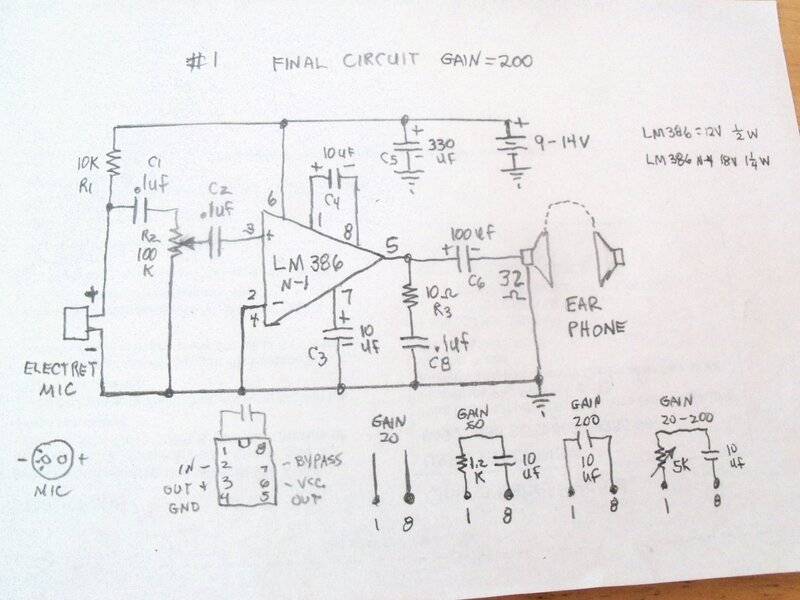 #1 FINAL CIRCUIT GAIN=200
LM386=12V ½W
LM386 N-4 18V 1¼W
10K
R1
C1
.1uf
R2
100
K
C2
.1uf
10uF
C4
C5
330
uF
9-14V
6
1
8
3
+
LM386
N-1
2
4
-
7
5
C3
10
uF
10Ω
R3
.1uf
C8
100uf
C6
32
Ω
EAR
PHONE
+
-
ELECTRET
MIC
- +
MIC
1 8
IN - 2 7 - BYPASS
OUT + 3 6 - VCC
GND 4 5 OUT
GAIN
20
1 8
GAIN
50
1.2
K
10
uf
1 8
GAIN
200
10
uF
1 8
GAIN
20-200
5K
10
uf
1 8